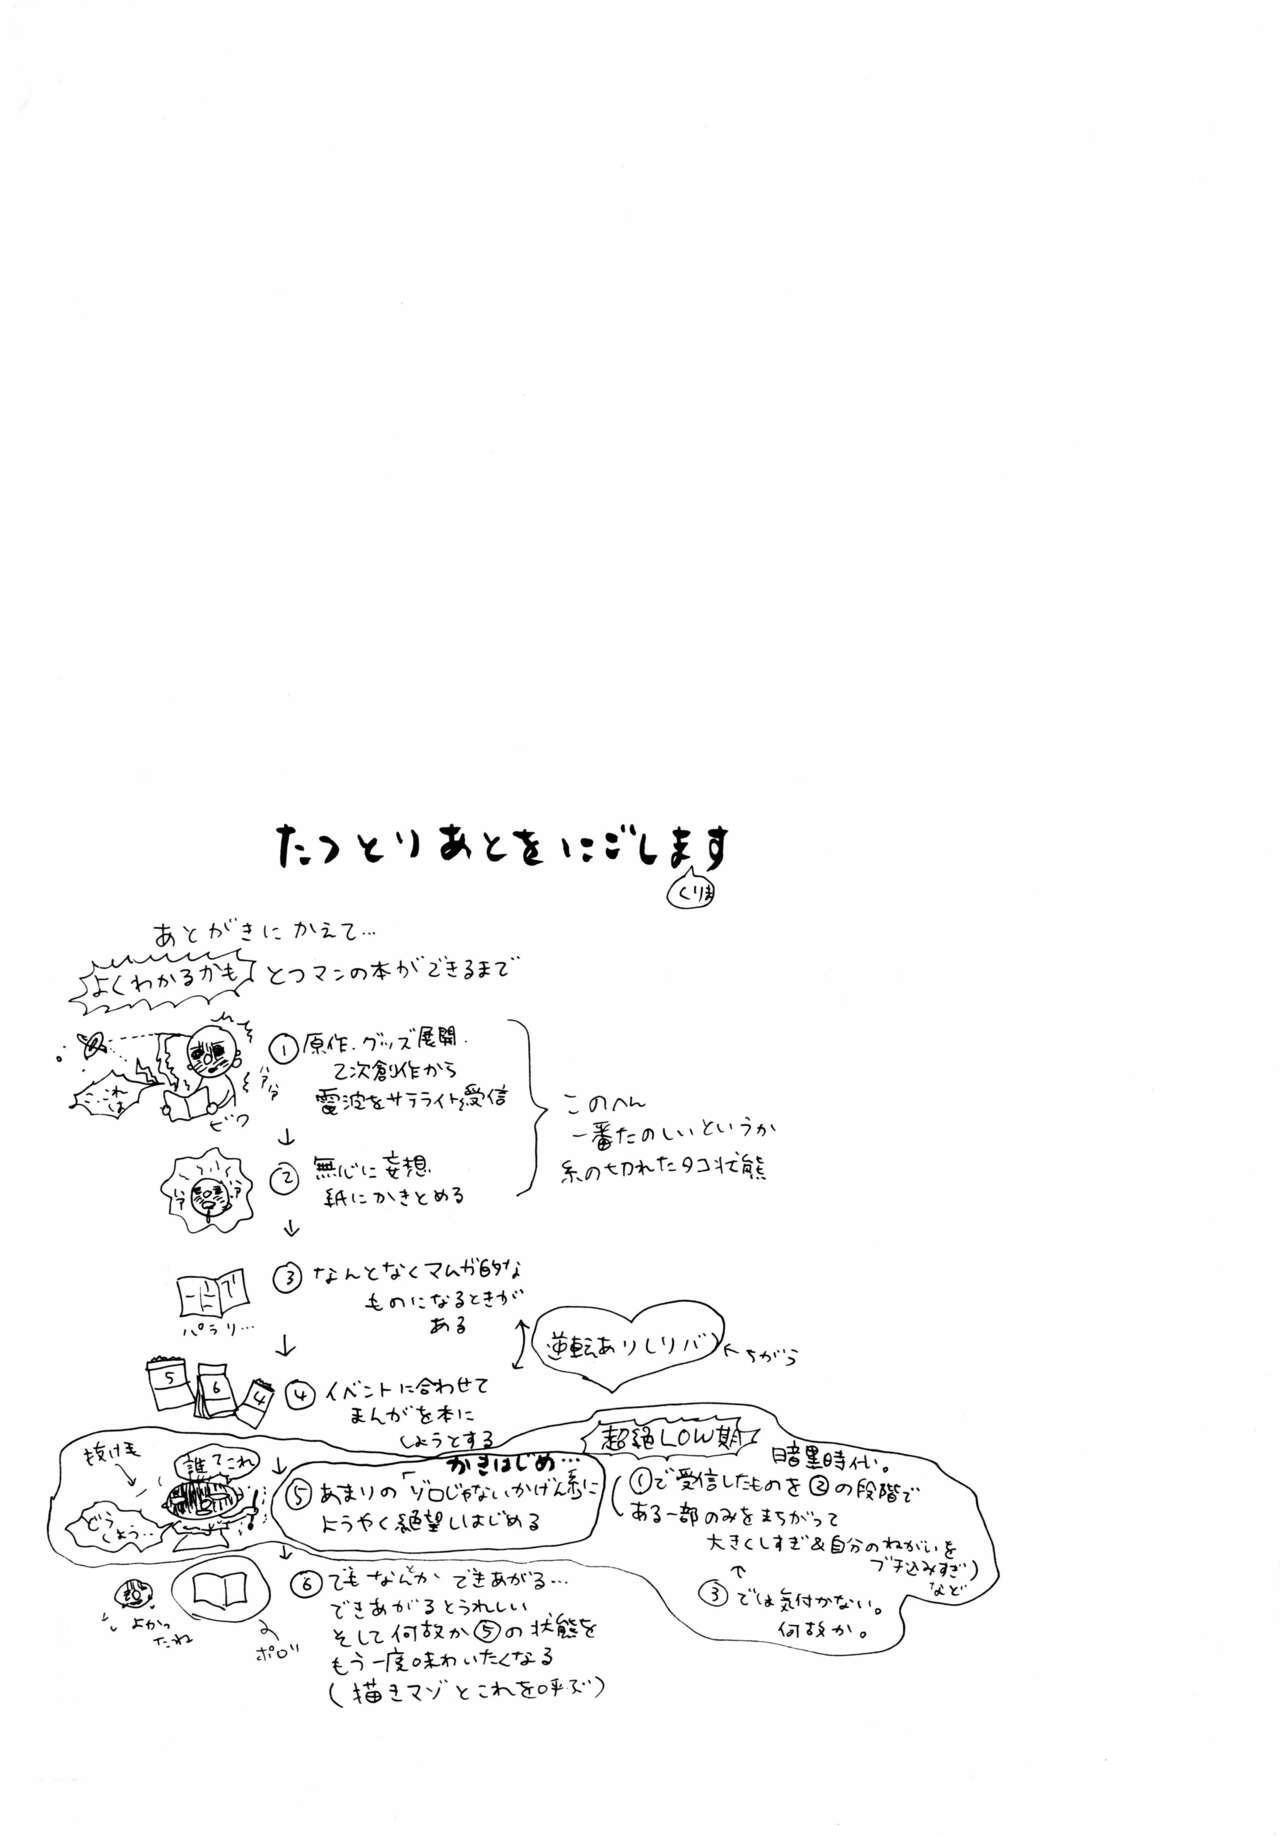 たつとりあとをにごします
くりま
あとがきにかえて…
よくわかるかも
とつマンの本ができるまで
① 原作、グッズ展開、
乙次創作から
電波をサテライト受信
ここれは
ビク
ハァハァ
↓
② 無心に妄想、
紙にかきとめる
このへん
一番たのしいというか
糸の切れたタコ状態
↓
③ なんとなくマムガ的な
ものになるときが
ある
パラリ…
逆転ありしリバ
←ちがう
↓
5
6
4
④ イベントに合わせて
まんがを本に
しようとする
抜け毛
誰てこれ
どうしよう…
↓
かきはじめ…
⑤ あまりの「ゾロじゃないかげん系に
ようやく絶望しはじめる
超絶LOW期
暗黒時代。
(①で受信したものを②の段階で
ある一部のみをまちがって
大きくしすぎ&自分のねがいを
ブチ込みすぎ)
など
↑
③では気付かない。
何故か。
↓
⑥ でもなんとかできあがる…
できあがるとうれしい
そして何故か⑤の状態を
もう一度味わいたくなる
(描きマゾとこれを呼ぶ)
よかったね
ポロリ